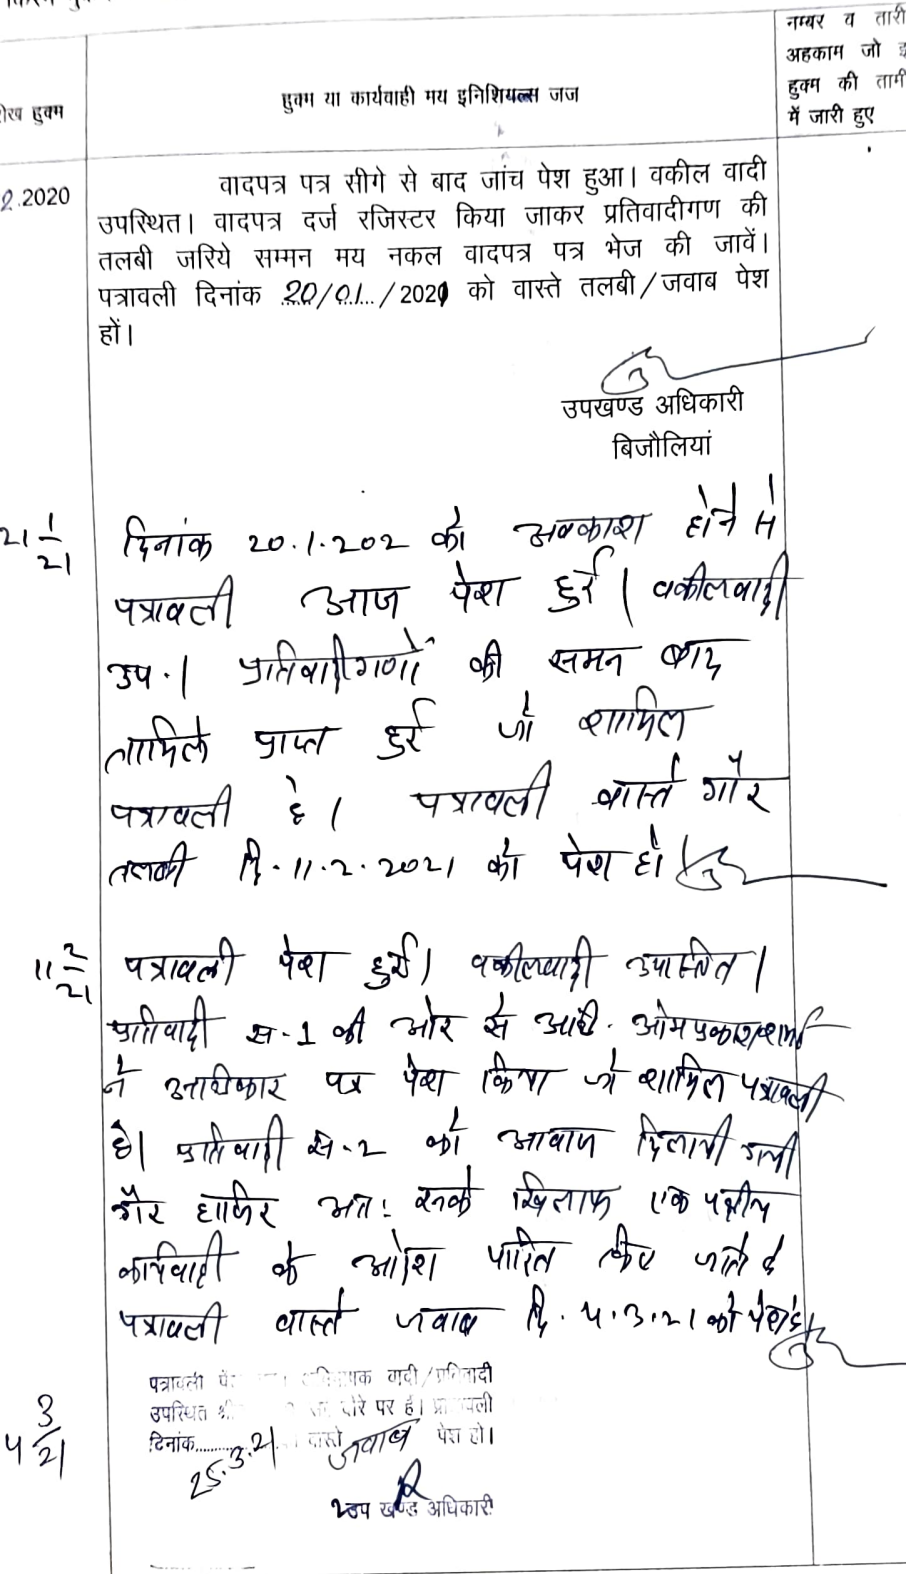 नम्बर व तारी
अहकाम जो इ
हुक्म की तामी
में जारी हुए
रीख हुक्म
हुक्म या कार्यवाही मय इनिशियल्स जज
2.2020
वादपत्र पत्र सीगे से बाद जांच पेश हुआ। वकील वादी
उपस्थित। वादपत्र दर्ज रजिस्टर किया जाकर प्रतिवादीगण की
तलबी जरिये सम्मन मय नकल वादपत्र पत्र भेज की जावें।
पत्रावली दिनांक 20/01../2021 को वास्ते तलबी/जवाब पेश
हों।
उपखण्ड अधिकारी
बिजौलियां
21 1/21
दिनांक 20.1.202 को अवकाश होने से
पत्रावली आज पेश हुई। वकीलवादी
उप.। प्रतिवादीगणों की समन बाद
तामिले प्राप्त हुई जो शामिल
पत्रावली है। पत्रावली वास्ते गौर
तलबी दि. 11.2.2021 को पेश हो।
11 2/21
पत्रावली पेश हुई। वकीलवादी उपस्थित।
प्रतिवादी स.1 की ओर से अधि. ओमप्रकाश शर्मा
ने अधिकार पत्र पेश किया जो शामिल पत्रावली
है। प्रतिवादी स.2 को आवाज दिलायी गयी
गैर हाजिर अत: इनके खिलाफ एक पक्षीय
कार्यवाही के आदेश पारित किए जाते है
पत्रावली वास्ते जवाब दि. 4.3.21 को पेश हो
4 3/21
पत्रावली वादी/प्रतिवादी
उपस्थित दौरे पर है।
दिनांक 25.3.21 वास्ते जवाब पेश हो।
उप खण्ड अधिकारी